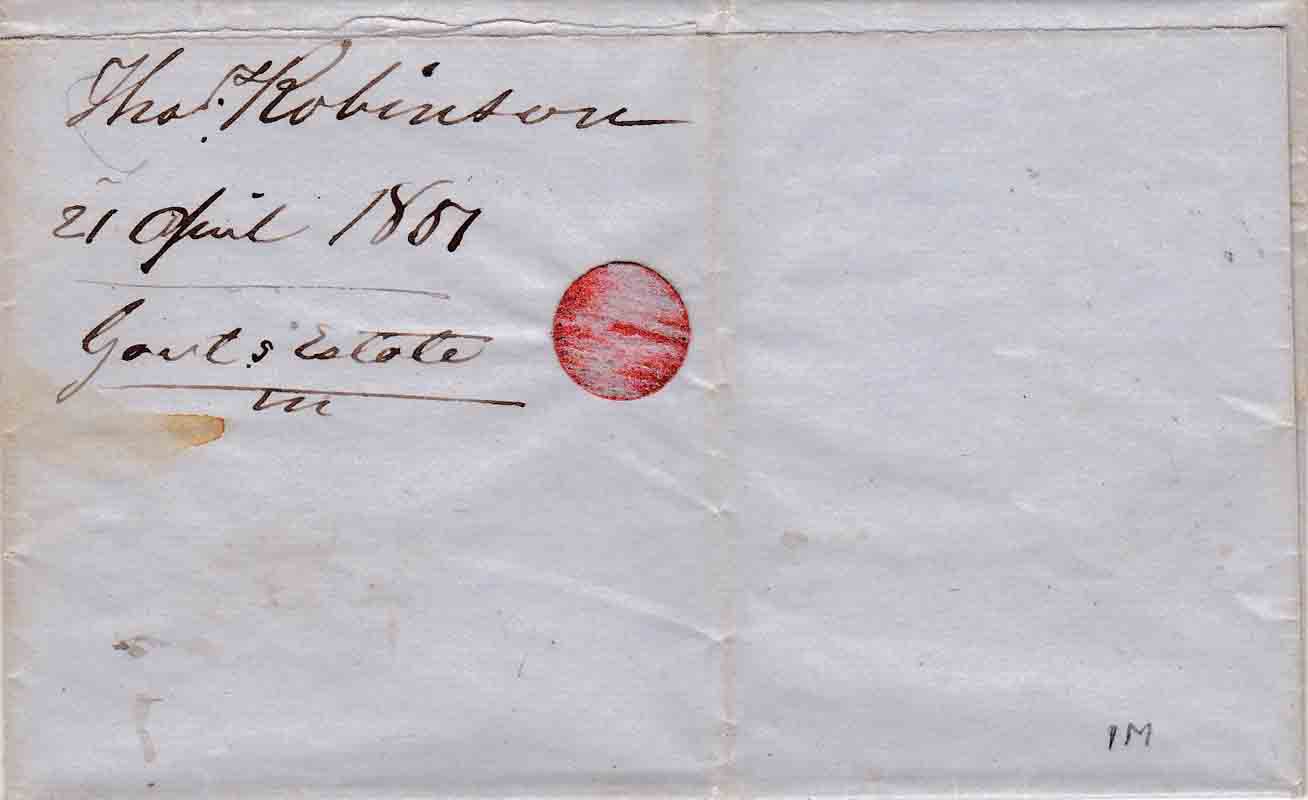 Thos. Robinson
21 April 1851
Govt. Estate
1M